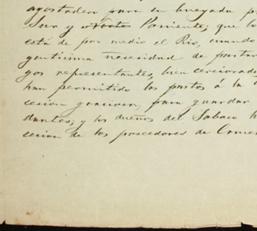 agostadero para su boyada p
Sur y Norte Poniente, que lo
está de por medio el Rio, cuando
gentisima necesidad de pastar
gos representantes, bien cerciorado
han permitido los pastos á la
cesion graciosa, para guardar
dantes, y los dueños del Sabaco
cesion de los poseedores de